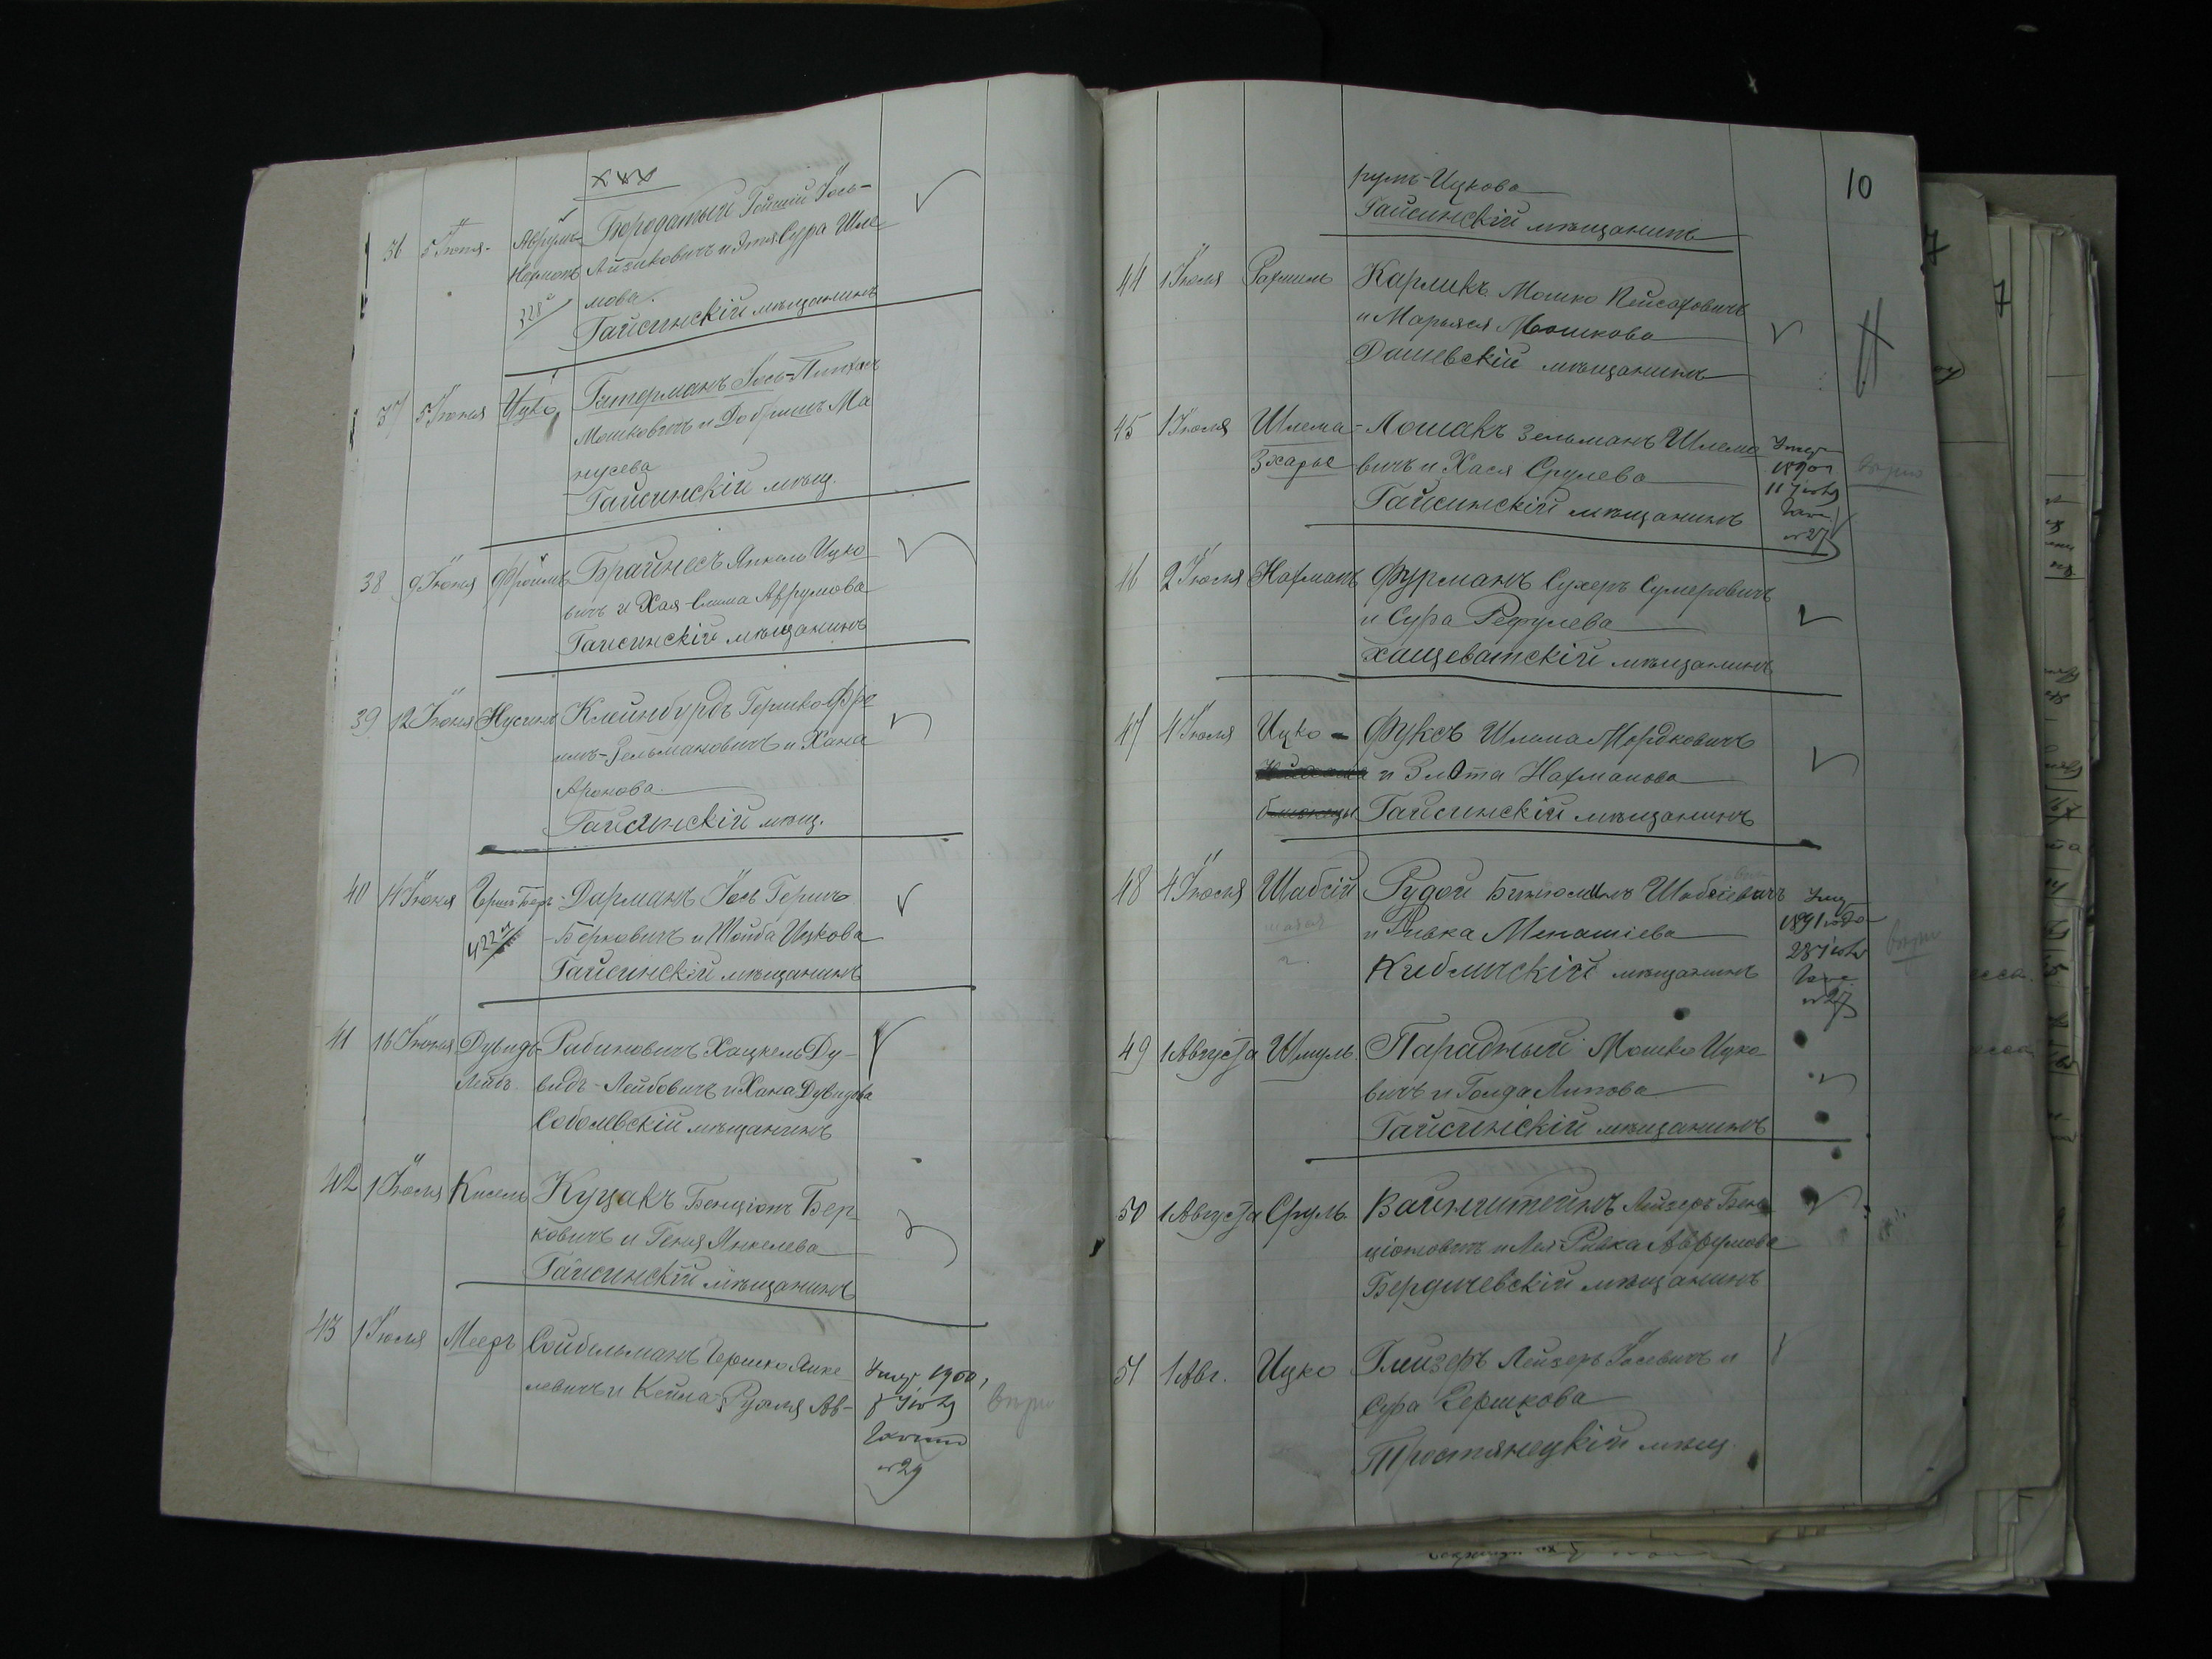 36 5 Іюня Аврумъ- Бородатый Гойшій Іось-
Нафтонъ Айзиковичъ и Этя Сура Шле-
328 мова.
Гайсинскій мѣщанинъ
37 5 Іюня Ицко Гитерманъ Іось-Пинхас
Мошковичъ и Добришъ Ма
нусева
Гайсинскій мѣщ.
38 9 Іюня Фроимъ Брайнесъ Янкель Ицко
вичъ и Хая-Сима Аврумова
Гайсинскій мѣщанинъ
39 12 Іюня Нусинъ Клейнбурдъ Гершко Фро
имъ-Зельмановичъ и Хана
Аронова
Гайсинскій мѣщ.
40 14 Іюня Гершъ Беръ- Дарманъ Іось Гершъ
422 -Берковичъ и Шейба Ицкова
Гайсинскій мѣщанинъ
41 16 Іюня Дувидъ- Рабиновичъ Хацкель Ду-
Лейбъ видъ-Лейбовичъ и Хана Дувидова
Соболевскій мѣщанинъ
42 1 Іюля Кисель Куцакъ Бенціонъ Бер-
ковичъ и Геня Янкелева
Гайсинскій мѣщанинъ
43 1 Іюля Мееръ Сойбельманъ Гершко Янке
левичъ и Кейла-Рухля Ав-
1900
8
№ 29
10
румъ-Ицкова
Гайсинскій мѣщанинъ
44 1 Іюля Рахмиль Карликъ Мошко Пейсаховичъ
и Марьяся Мошкова
Дашевскій мѣщанинъ
45 1 Іюля Шлема- Лошакъ Зельманъ Шлемо
Зхарье вичъ и Хася Срулева
Гайсинскій мѣщанинъ
11
№ 27
46 2 Іюля Нахманъ Фурманъ Сухеръ Сумеровичъ
и Сура Рефулева
Хащеватскій мѣщанинъ
47 4 Іюля Ицко - Фуксъ Шлема Мордковичъ
и Злота Нахманова
Гайсинскій мѣщанинъ
48 4 Іюля Шабсій Рудой Биньюминъ Шабсіевичъ
и Ривка Менашіева
Кибличскій мѣщанинъ
1891 года
28
№ 27
49 1 Августа Шмуль Парадный Мошко Ицко-
вичъ и Голда Липова
Гайсинскій мѣщанинъ
50 1 Августа Сруль Вайнштейнъ Лейзеръ Бен-
ціоновичъ и Лея-Ривка Аврумова
Бердичевскій мѣщанинъ
51 1 Авг. Ицко Глейзеръ Лейзеръ Іосевичъ и
Сура Гершкова
Тростянецкій мѣщ.